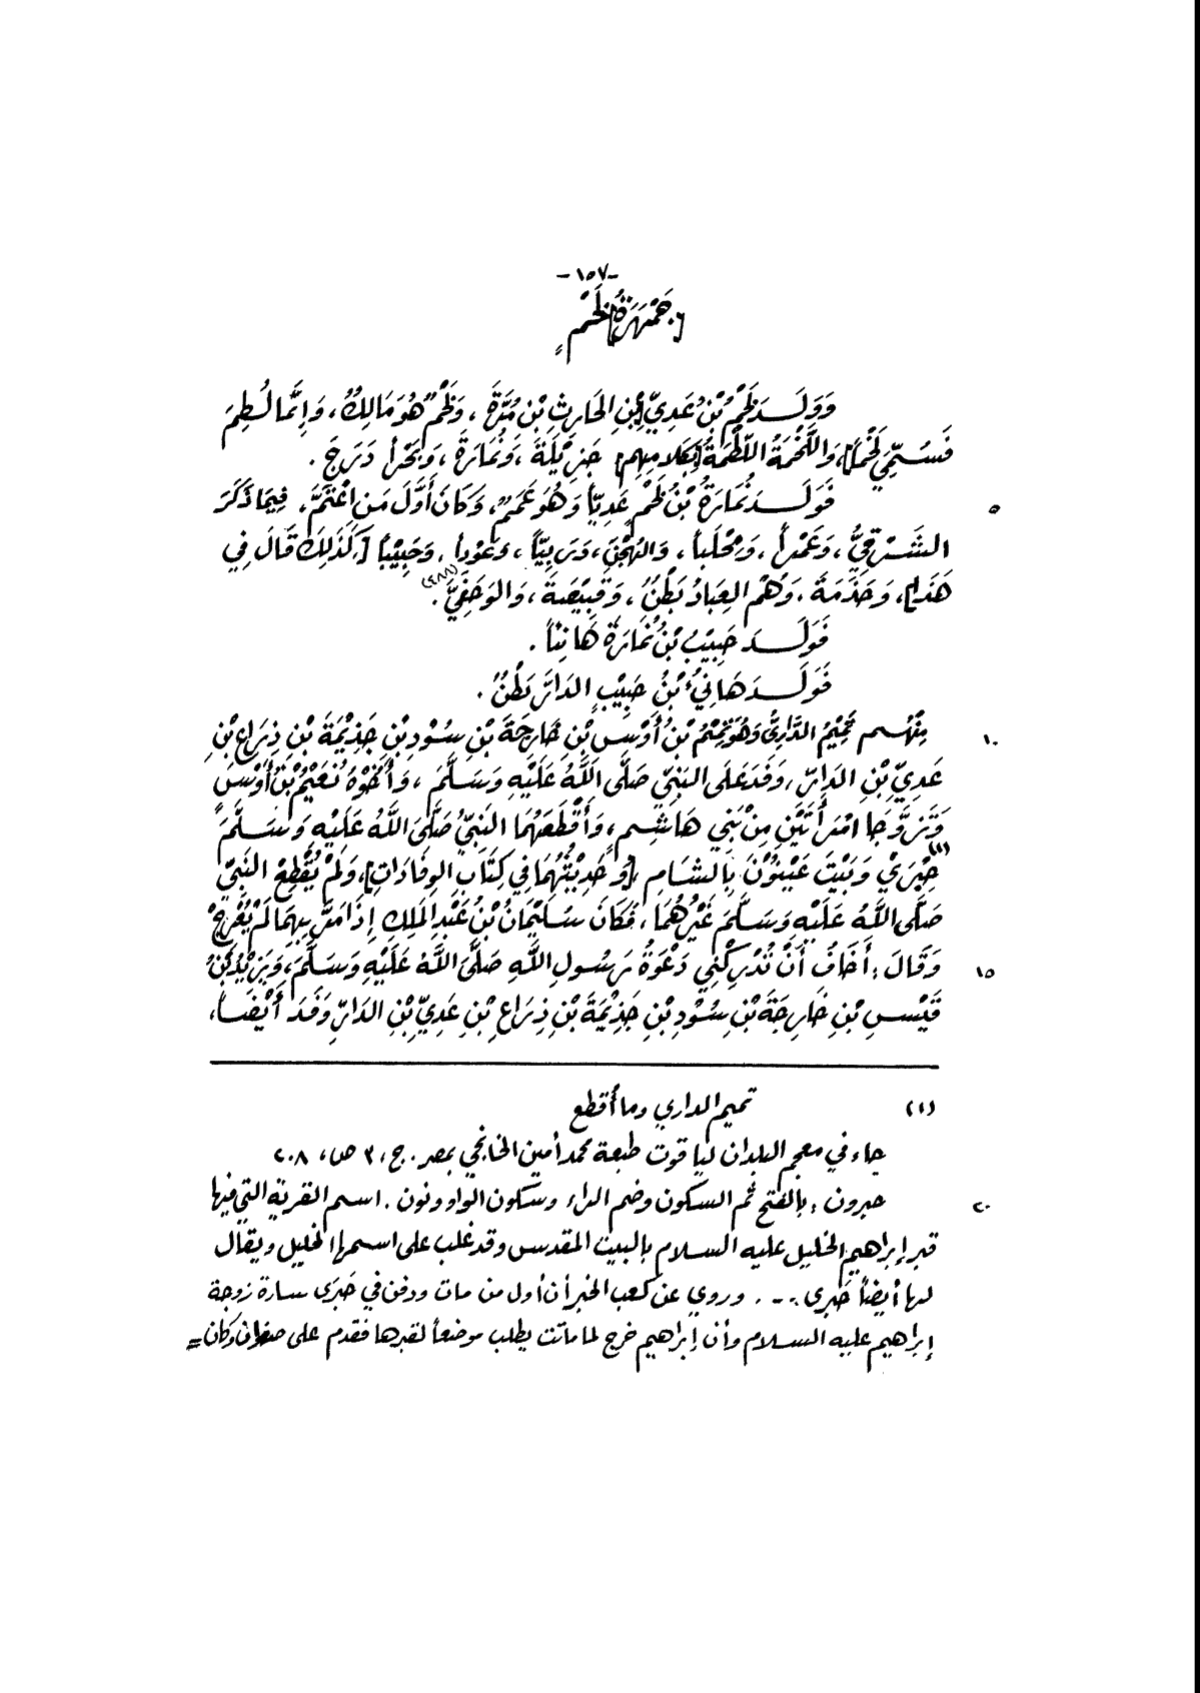 -١٥٧-
[جَمْهَرَةُ] لَخْمٍ
وَوَلَدَ لَخْمُ بْنُ عَدِيِّ [بْنِ الحَارِثِ بْنِ مُرَّةَ، وَلَخْمٌ هُوَ مَالِكٌ، وَإِنَّمَا لُطِمَ
فَسُمِّيَ لَخْماً]، وَاللَّخْمَةُ اللَّطْمَةُ [بِكَلَامِهِم] جَزِيْلَةَ، وَنُمَارَةَ، وَبَحْراً دَرَجَ.
٥ فَوَلَدَ نُمَارَةُ بْنُ لَخْمٍ عَدِيّاً وَهُوَ عَمَمٌ، وَكَانَ أَوَّلَ مَنِ اعْتَمَّ، فِيمَا ذَكَرَ
الشَّرْقِيُّ، وَعَمْراً، وَمِحْلَباً، وَالهُجْنَ، وَرَبِيّاً، وَعَوْداً، وَحَبِيْباً [كَذَلِكَ قَالَ فِي
هَذَا]، وَحَذَمَةَ، وَهُمُ العِبَادُ بَطْنٌ، وَقَبِيْصَةَ، وَالوَحَفِيَّ(٢٨٨).
فَوَلَدَ حَبِيْبُ بْنُ نُمَارَةَ هَانِئاً.
فَوَلَدَ هَانِئُ بْنُ حَبِيْبٍ الدَارَ بَطْنٌ.
١٠ مِنْهُم تَمِيْمُ الدَّارِيُّ وَهُوَ تَمِيْمُ بْنُ أَوْسِ بْنِ خَارِجَةَ بْنِ سُوْدِ بْنِ جَذِيْمَةَ بْنِ ذِرَاعِ بْنِ
عَدِيِّ بْنِ الدَارِ، وَفَدَ عَلَى النَبِيِّ صَلَّى اللهُ عَلَيْهِ وَسَلَّمَ، وَأَخُوْهُ نُعَيْمُ بْنُ أَوْسٍ
وَتَزَوَّجَا امْرَأَتَيْنِ مِنْ بَنِي هَاشِمٍ، وَأَقْطَعَهُمَا النَبِيُّ صَلَّى اللهُ عَلَيْهِ وَسَلَّمَ
حِبْرَى(١) وَبَيْتَ عَيْنُوْنَ بِالشَامِ [وَحَدِيْثُهُمَا فِي كِتَابِ الوِفَادَاتِ]، وَلَمْ يُقْطِعْ النَبِيُّ
صَلَّى اللهُ عَلَيْهِ وَسَلَّمَ غَيْرَهُمَا، فَكَانَ سُلَيْمَانُ بْنُ عَبْدِ المَلِكِ إِذَا مَرَّ بِهِمَا لَمْ يُعَرِّجْ
١٥ وَقَالَ: أَخَافُ أَنْ تُدْرِكَنِي دَعْوَةُ رَسُولِ اللهِ صَلَّى اللهُ عَلَيْهِ وَسَلَّمَ، وَيَزِيْدُ بْنُ
قَيْسِ بْنِ خَارِجَةَ بْنِ سُوْدِ بْنِ جَذِيْمَةَ بْنِ ذِرَاعِ بْنِ عَدِيِّ بْنِ الدَارِ وَفَدَ أَيْضاً،
(١) تميم الداري وما أقطع
جاء في معجم البلدان لياقوت طبعة محمد أمين الخانجي بمصر. ج، ٣ ص، ٢٠٨
٢٠ حبرون: بالفتح ثم السكون وضم الراء وسكون الواو ونون. اسم القرية التي فيها
قبر إبراهيم الخليل عليه السلام بالبيت المقدس وقد غلب على اسمها الخليل ويقال
لها أيضاً حَبرى... وروي عن كعب الحبر أن أول من مات ودفن في حَبرَى سارة زوجة
إبراهيم عليه السلام وأن إبراهيم خرج لما ماتت يطلب موضعاً لقبرها فقدم على صفوان وكان =